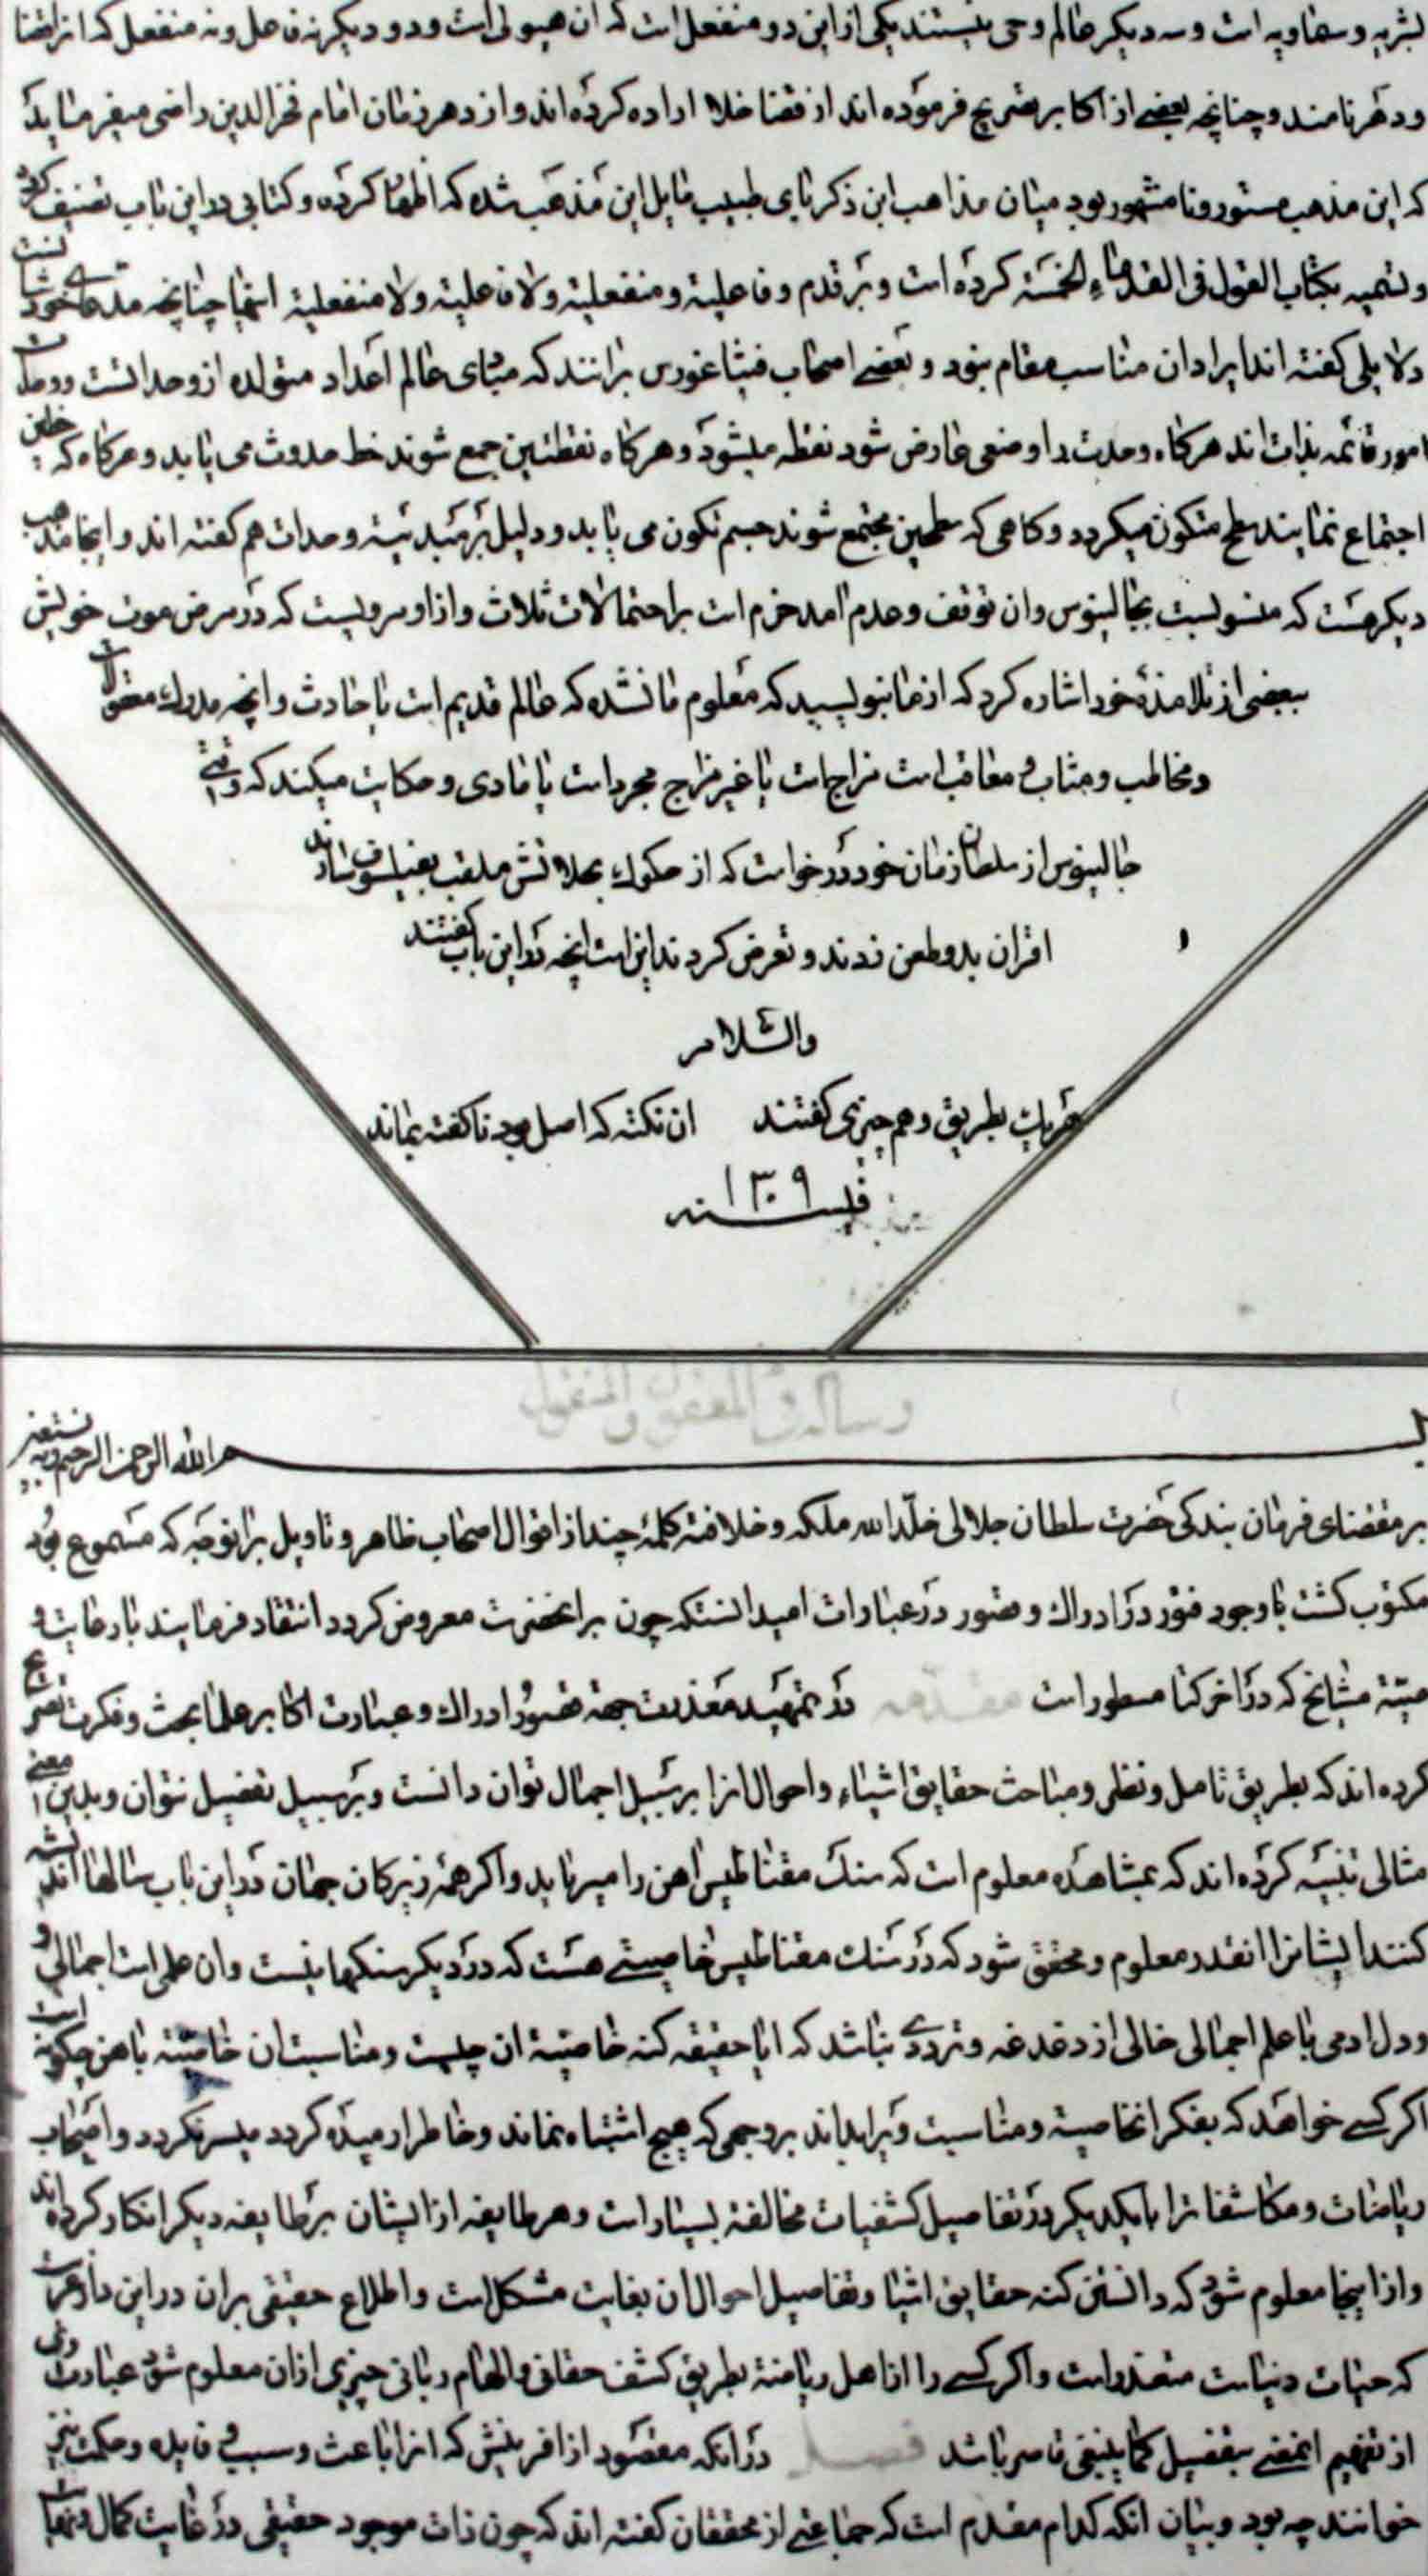 بشریه و سماویه است و سه دیکر عالم و حی نیستند یکی از این دو منفعل است که ان هیولی است و دو دیکر نه فاعل و نه منفعل که انرا فضا
و دهر نامند و چنانچه بعضی از اکابر تصریح فرموده اند از فضا خلا اراده کرده اند و از دهر زمان امام فخر الدین راضی میفرماید
که این مذهب مستور و نا مشهور بود میان مذاهب ابن ذکریای طبیب قایل این مذهب شده که اظهار کرده و کتابی در این باب تصنیف کرد
و تسمیه بکتاب القول فی القدماء الخمسة کرده است و بر قدم و فاعلیة و منفعلیة و لا فاعلیة و لا منفعلیة اینها چنانچه مدعای خودشانست
دلایلی کفته اند ایراد ان مناسب مقام نبود و بعضی اصحاب فیثاغورس برانند که مبادی عالم اعداد متولده از وحدانست و وحدات
امور قائمه بذات اند هرکاه وحدت را وضعی عارض شود نقطه میشود و هرکاه نقطتین جمع شوند خط حدوث می یابد و هرکاه که خطین
اجتماع نمایند سطح متکون میکردد و کاهی که سطحین مجتمع شوند جسم تکون می یابد و دلیل بر مبدئیة وحدات هم کفته اند و اینجا مذهب
دیکر هست که منسوبست بجالینوس وان توقف و عدم امد جزم است براحتمالات ثلاث و از او مرویست که در مرض موت خویش
ببعضی از تلامذهٔ خود اشاره کرد که از ما بنویسید که معلوم ما نشده که عالم قدیم است یا حادث و انچه مدرك معقولات
و مخاطب و مثاب و معاقب است مزاج است یا غیر مزاج مجرد است یا مادی و حکایت میکند که وقتی
جالینوس از سلطان زمان خود درخواست که از حکوك بجلالتش ملقب بفیلسوف سازند
اقران بدو طعن زدند و تعرض کردند این است انچه در این باب کفتند
والسلام
هر یک بطریق وهم چیزی کفتند ان نکته که اصل بود نا کفته بماند
فی سنه ۱۳۰۹
رسالة فی المعقول و المنقول
بسم الله الرحمن الرحیم و به نستعین
بر مقتضای فرمان بندکی حضرت سلطان جلالی خلّد الله ملکه و خلافته کلمهٔ چند از اقوال اصحاب ظاهر و تاویل بر انوجه که مسموع بود
مکتوب کشت با وجود فتور در ادراك و قصور در عبارات امید انستکه چون بر انحضرت معروض کردد انتقاد فرمایند با رعایت و
میّتة مشایخ که در آخر کتا مسطور است مقدمه در تمهید معذرت جهة قصور ادراك و عبارت اکابر علما بحث و فکرت تصریح
کرده اند که بطریق تامل و نظر و مباحث حقایق اشیاء و احوال انرا بر سبیل اجمال توان دانست و بر سبیل تفصیل نتوان و بدین معنی
مثالی تنبیه کرده اند که بمشاهده معلوم است که سنك مقناطیس اهن را میرباید و اکر همه زیرکان جهان در این باب سالها اندیشه
کنند ایشانرا انقدر معلوم و محقق شود که در سنك مقناطیس خاصیتی هست که در دیکر سنکها نیست وان علمی است اجمالی و
و دل ادمی با علم اجمالی خالی از دغدغه و تردد نباشد که ایا حقیقه کنه خاصیة ان چیست و مناسبت ان خاصیة با اهن چکونه است
اکر کسی خواهد که بفکر انخاصیة و مناسبت ویرا بداند بر وجهی که هیچ اشتباه نماند و خاطر ارمیده کردد میسر نکردد و اصحاب
ریاضات و مکاشفا ترا با یکدیکر در تفاصیل کشفیات مخالفة بسیار است و هر طایفه از ایشان بر طایفه دیکر انکار کرده اند
و از اینجا معلوم شود که دانستن کنه حقایق اشیا و تفاصیل احوال ان بغایت مشکل است و اطلاع حقیقی بران در این دار
که حیات دنیاست متعذر است و اکر کسی را از اهل ریاضة بطریق کشف حقانی و الهام ربانی چیزی ازان معلوم شود عبارت وی
از تفهیم انمعنی بتفصیل کما ینبغی قاصر باشد فصل در انکه مقصود از افرینش که انرا باعث و سبب و فایده و حکمت نیز
خوانند چه بود و بیان انکه کدام مقدم است که جماعتی از محققان کفته اند که چون ذات موجود حقیقی در غایت کمال